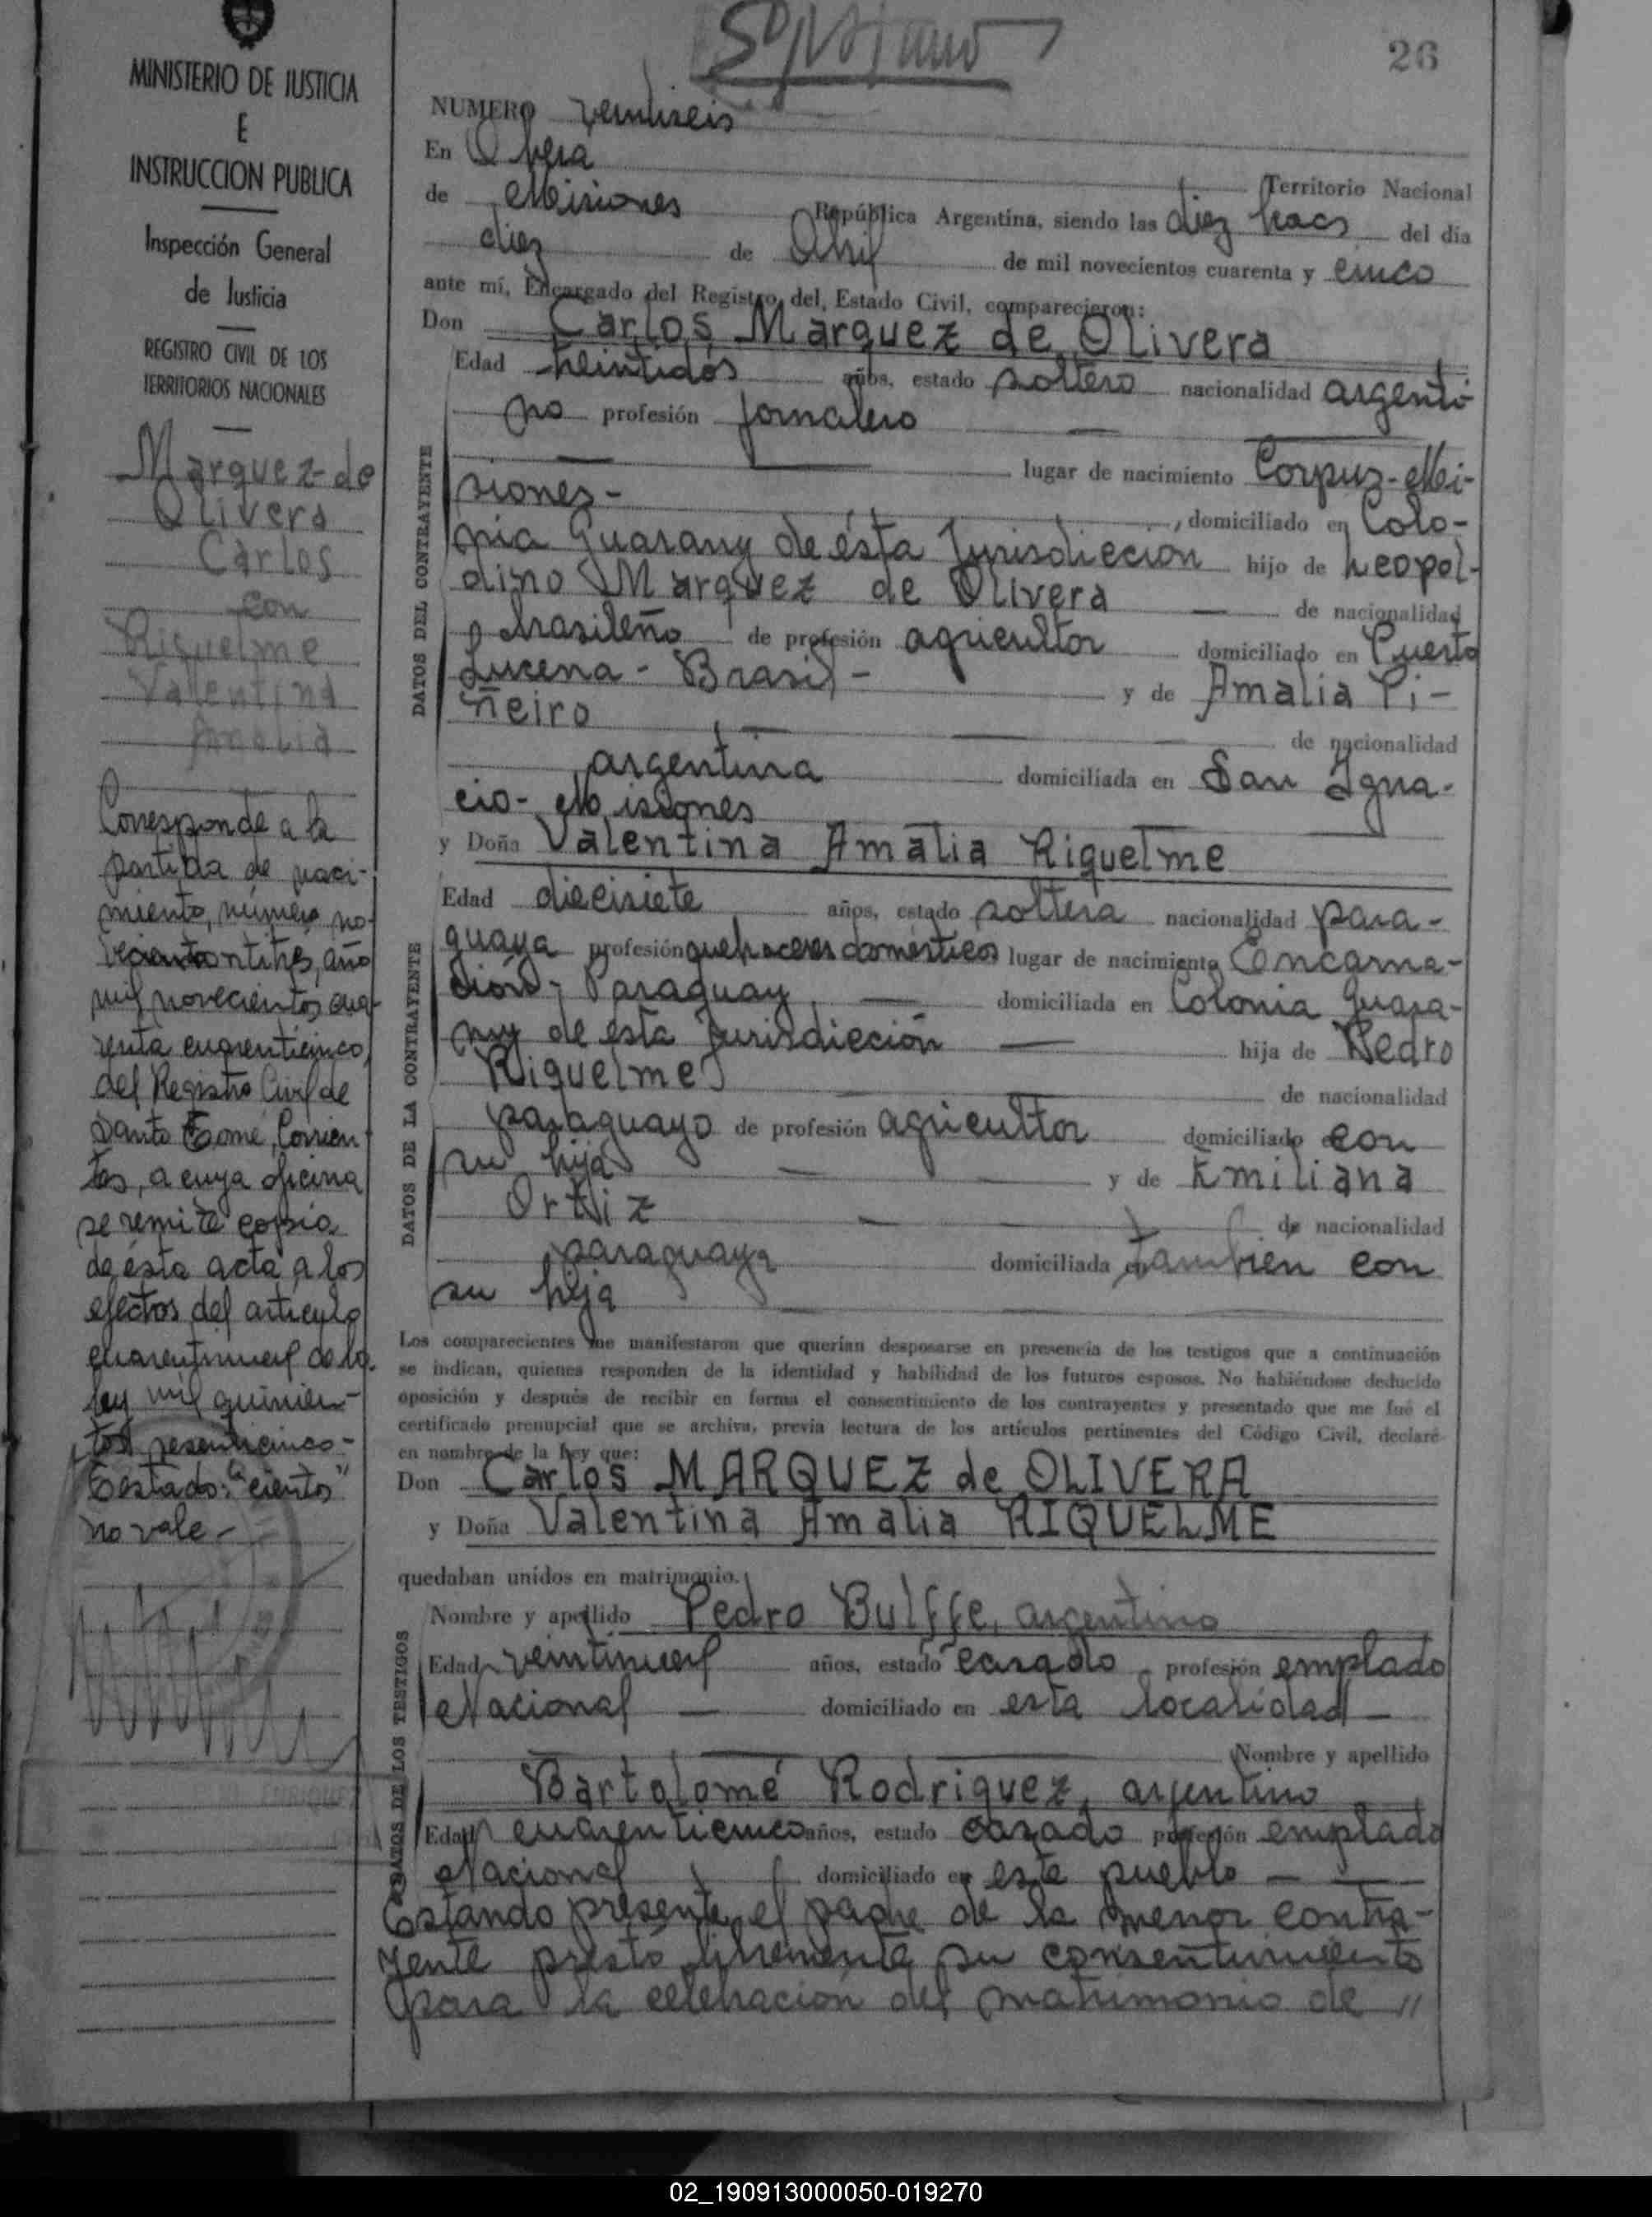 26
MINISTERIO DE JUSTICIA
E
INSTRUCCION PUBLICA
Inspección General
de Justicia
REGISTRO CIVIL DE LOS
TERRITORIOS NACIONALES
Marquez de
Olivera
Carlos
con
Riquelme
Valentina
Amalia
Corresponde a la
partida de naci-
miento, número no-
año
mil novecientos cua-
renta cuarenticinco,
del Registro Civil de
Santo Tomé, Corrien-
tes, a cuya oficina
se remite copia
de ésta acta a los
efectos del artículo
cuarentinueve de la
ley mil quinien-
tos sesenticinco-
Testado: "ciento"
no vale.-
NUMERO veintiseis
En Obera Territorio Nacional
de Misiones República Argentina, siendo las diez horas del día
diez de Abril de mil novecientos cuarenta y cinco
ante mí, Encargado del Registro del Estado Civil, comparecieron:
Don Carlos Marquez de Olivera
DATOS DEL CONTRAYENTE
Edad veintidós años, estado soltero nacionalidad argenti-
no profesión jornalero
lugar de nacimiento Corpus-Mi-
siones- domiciliado en Colo-
nia Guarany de ésta Jurisdicción hijo de Leopol-
dino Marquez de Olivera de nacionalidad
brasileño de profesión agricultor domiciliado en Puerto
Lucena - Brasil - y de Amalia Pi-
ñeiro de nacionalidad
argentina domiciliada en San Igna-
cio- Misiones
y Doña Valentina Amalia Riquelme
DATOS DE LA CONTRAYENTE
Edad diecisiete años, estado soltera nacionalidad para-
guaya profesión quehaceres domésticos lugar de nacimiento Encarna-
ción- Paraguay domiciliada en Colonia Guara-
ny de esta Jurisdicción hija de Pedro
Riquelme de nacionalidad
paraguayo de profesión agricultor domiciliado con
su hija y de Emiliana
Ortiz de nacionalidad
paraguaya domiciliada en tambien con
su hija
Los comparecientes me manifestaron que querían desposarse en presencia de los testigos que a continuación
se indican, quienes responden de la identidad y habilidad de los futuros esposos. No habiéndose deducido
oposición y después de recibir en forma el consentimiento de los contrayentes y presentado que me fué el
certificado prenupcial que se archiva, previa lectura de los artículos pertinentes del Código Civil, declaré
en nombre de la ley que:
Don Carlos MARQUEZ de OLIVERA
y Doña Valentina Amalia RIQUELME
quedaban unidos en matrimonio.
DATOS DE LOS TESTIGOS
Nombre y apellido Pedro Bulffe, argentino
Edad veintinueve años, estado casado profesión emplado
Nacional domiciliado en esta localidad
Nombre y apellido
Bartolomé Rodriguez, argentino
Edad cuarenticinco años, estado casado profesión emplado
Nacional domiciliado en este pueblo
Estando presente el padre de la menor contra-
yente prestó libremente su consentimiento
para la celebración del matrimonio de //
02_190913000050-019270